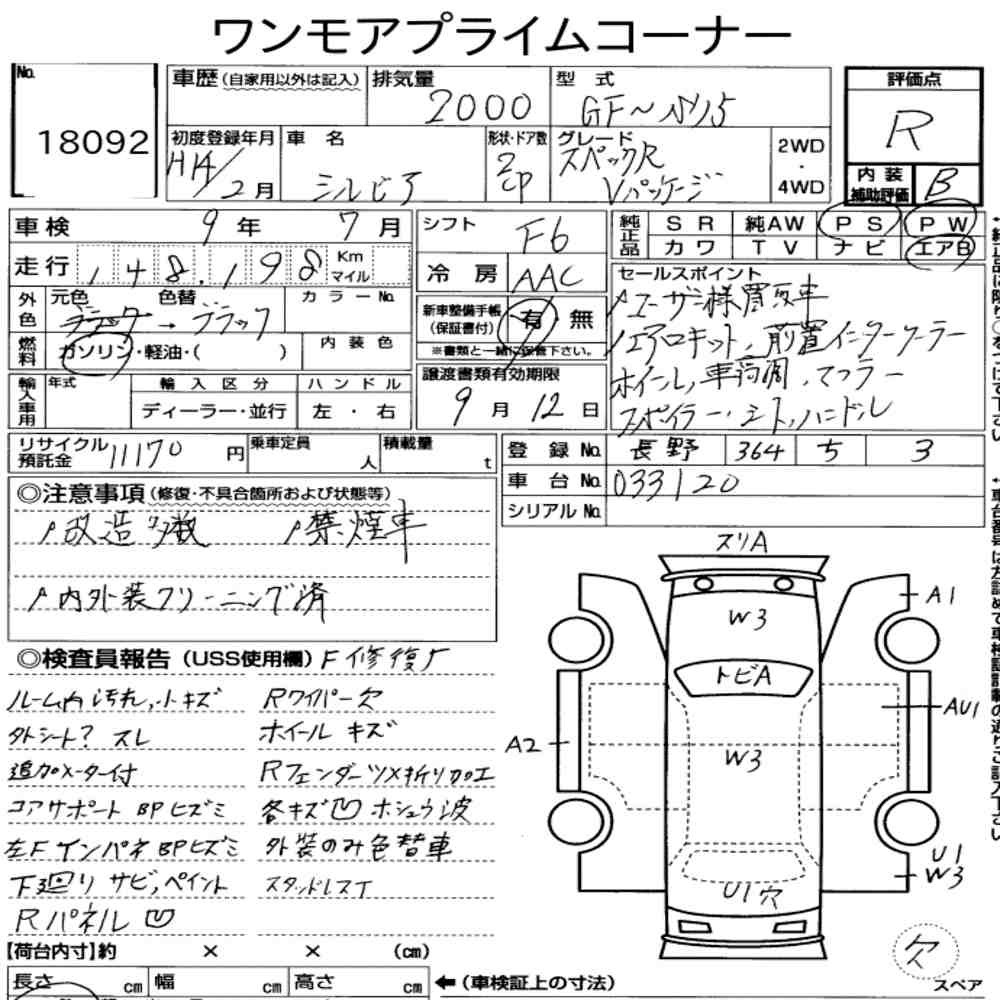 ワンモアプライムコーナー
No. 18092
車歴 (自家用以外は記入)
排気量 2000
型式 GF〜S15
評価点 R
初度登録年月 H14/2月
車名 シルビア
形状・ドア数 2 CP
グレード スペックR
Vパッケージ
2WD
4WD
内装補助評価 B
車検 9年 7月
シフト F6
純正品 SR 純AW PS PW
カワ TV ナビ エアB
走行 148,198 Km マイル
冷房 AAC
セールスポイント
ユーザー様買取車
エアロキット、前置インタークーラー
ホイール、車高調、マフラー
スポイラー・シート、ハンドル
外色 元色 色替 カラーNo.
ブラック → ブラック
新車整備手帳(保証書付) 有 無
※書類と一緒に保管下さい。
燃料 ガソリン・軽油・( )
内装色
譲渡書類有効期限
9月12日
輸入車用 年式 輸入区分 ハンドル
ディーラー・並行 左・右
リサイクル預託金 11170円
乗車定員 人
積載量 t
登録No. 長野 364 ち 3
車台No. 033120
シリアルNo.
◎注意事項 (修復・不具合箇所および状態等)
改造多数 禁煙車
内外装クリーニング済
◎検査員報告 (USS使用欄) F修復歴
ルーム内汚れ、小キズ Rワイパー欠
外シート? スレ ホイールキズ
追加メーター付 Rフェンダーツメ折り加工
コアサポートBPヒズミ 各キズ凹ホシュウ波
左FインパネBPヒズミ 外装のみ色替車
下廻りサビ、ペイント スタッドレスT
Rパネル凹
スリA
W3
A1
トビA
A2
AU1
W3
U1
W3
U1穴
欠
スペア
【荷台内寸】約 × × (cm)
長さ cm 幅 cm 高さ cm ←(車検証上の寸法)